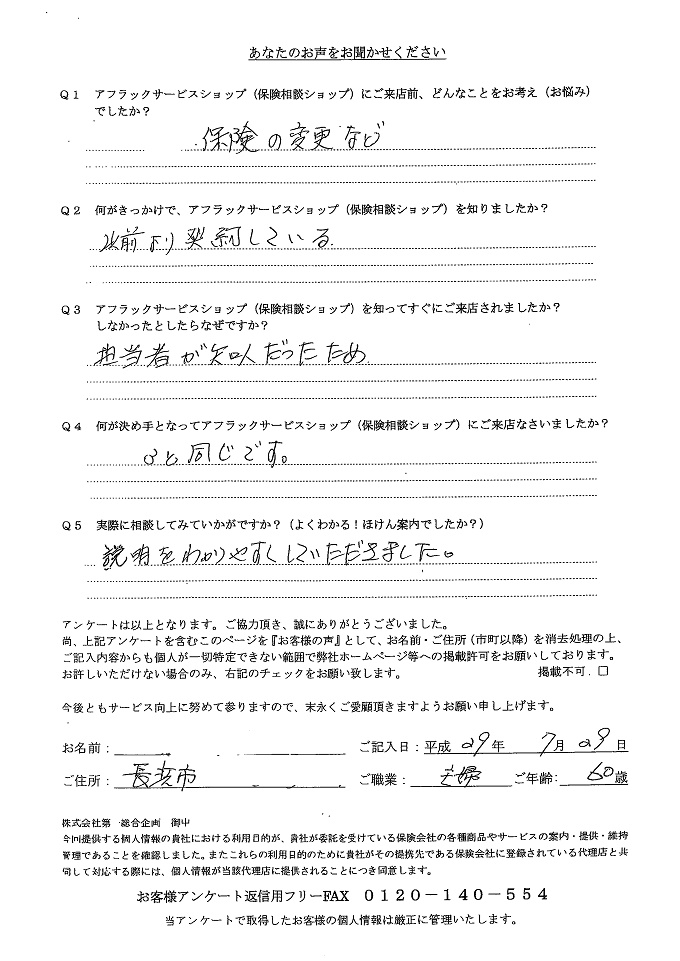 あなたのお声をお聞かせください
Q1 アフラックサービスショップ（保険相談ショップ）にご来店前、どんなことをお考え（お悩み）
でしたか？
保険の変更など
Q2 何がきっかけで、アフラックサービスショップ（保険相談ショップ）を知りましたか？
以前より契約している
Q3 アフラックサービスショップ（保険相談ショップ）を知ってすぐにご来店されましたか？
しなかったとしたらなぜですか？
担当者が知人だったため
Q4 何が決め手となってアフラックサービスショップ（保険相談ショップ）にご来店なさいましたか？
3と同じです。
Q5 実際に相談してみていかがですか？（よくわかる！ほけん案内でしたか？）
説明をわかりやすくしていただきました。
アンケートは以上となります。ご協力頂き、誠にありがとうございました。
尚、上記アンケートを含むこのページを『お客様の声』として、お名前・ご住所（市町以降）を消去処理の上、
ご記入内容からも個人が一切特定できない範囲で弊社ホームページ等への掲載許可をお願いしております。
お許しいただけない場合のみ、右記のチェックをお願い致します。 掲載不可．□
今後ともサービス向上に努めて参りますので、末永くご愛顧頂きますようお願い申し上げます。
お名前： ご記入日：平成 29年 7月 29日
ご住所： 長浜市 ご職業： 主婦 ご年齢： 60歳
株式会社第一総合企画 御中
今回提供する個人情報の貴社における利用目的が、貴社が委託を受けている保険会社の各種商品やサービスの案内・提供・維持
管理であることを確認しました。またこれらの利用目的のために貴社がその提携先である保険会社に登録されている代理店と共
同して対応する際には、個人情報が当該代理店に提供されることにつき同意します。
お客様アンケート返信用フリーFAX 0120－140－554
当アンケートで取得したお客様の個人情報は厳正に管理いたします。